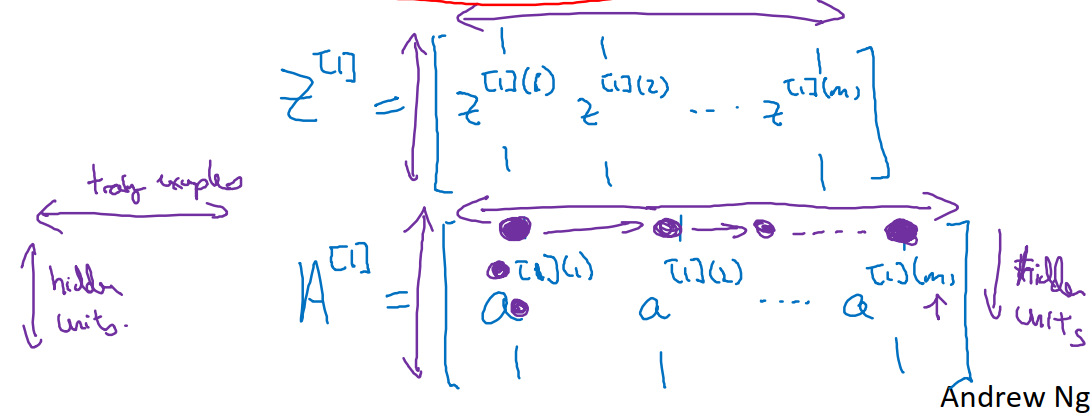 Z^[1] = [ z^[1](1) z^[1](2) ... z^[1](m) ]
training examples
hidden units.
A^[1] = [ a^[1](1) a^[1](2) .... a^[1](m) ]
#hidden units
Andrew Ng